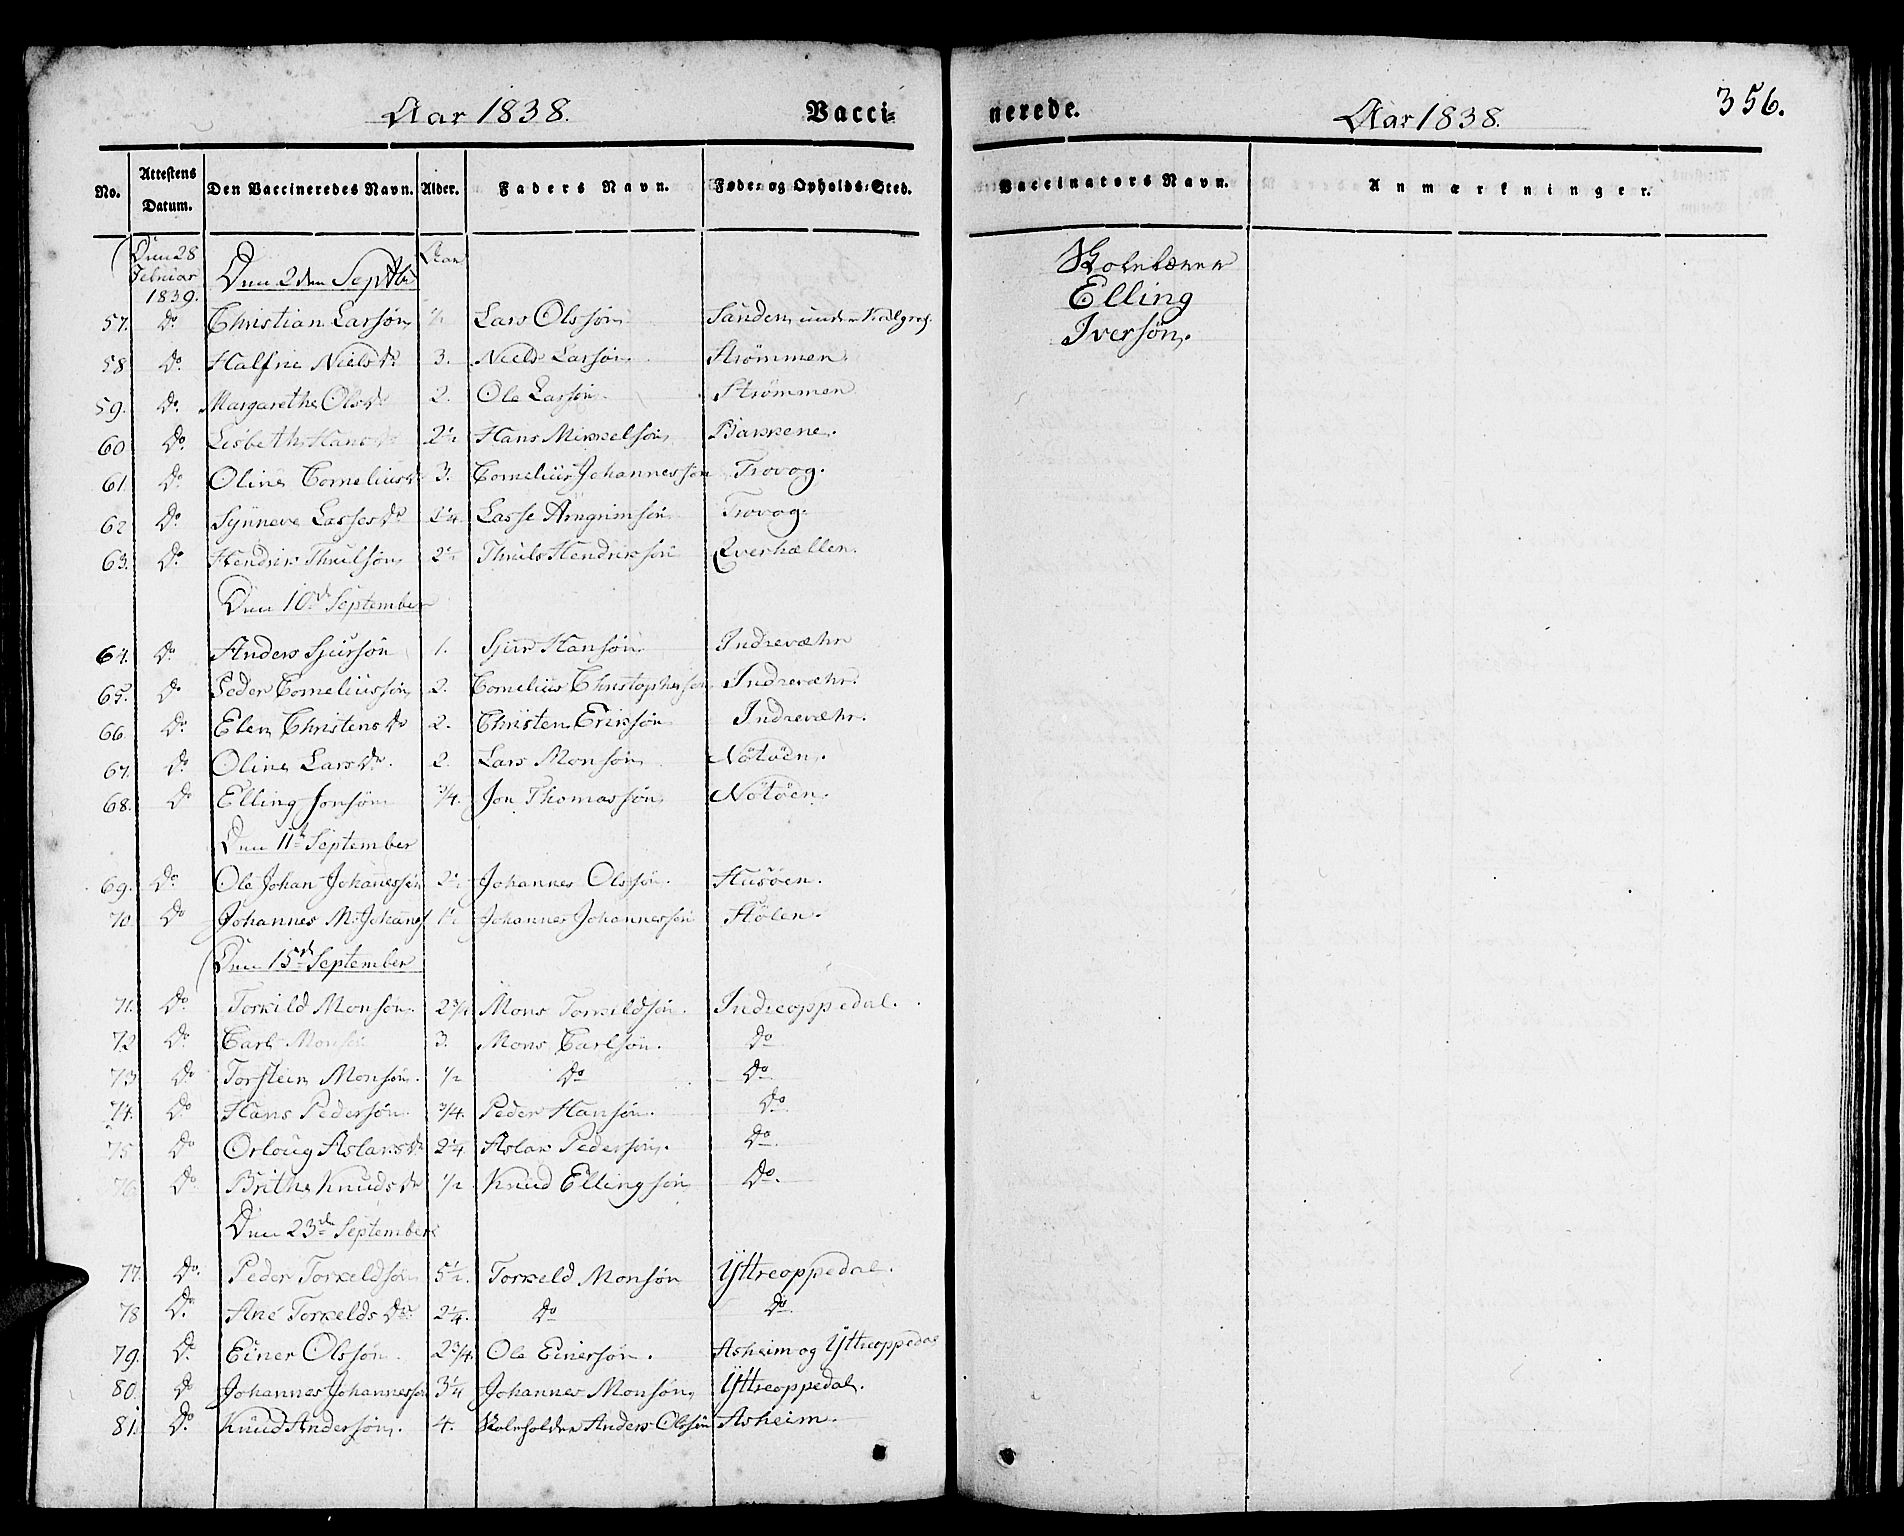 Aar 1838. Vacci-
No. Attestens Datum. Den Vaccineredes Navn. Alder. Faders Navn. Føde- og Opholds-Sted.
Den 28 Februar 1839. Den 2den Septbr Aar
57. Do Christian Larsøn 1/2 Lars Olssøn Sanden under
58 Do Nielsdr 3. Niels Larsøn. Strømmen.
59. Do. Margarethe Olsdr 2. Ole Larsøn. Strømmen
60 Do. Lisbeth Hansdr 2 1/2 Hans Mikkelsøn Bakkene.
61. Do. Oline Corneliusdr 3. Cornelius Johannessøn Trovog.
62 Do. Synneve Lassesdr Lasse Arngrimsøn Trovog.
63. Do. Hendrik Thrulsøn 2 1/2 Thruls Hendriksøn Qverhællen.
Den 10de September
64. Do. Anders Sjursøn 1. Sjur Hansøn. Indrevæhr
65. Do Peder Corneliussøn 2. Cornelius Christophersøn Indrevæhr.
66 Do. Elen Christensdr 2. Christen Eriksøn Indrevæhr.
67. Do. Oline Larsdr. 2. Lars Monsøn Nötöen.
68. Do Elling Jonsøn 3/4. Jon Thomassøn Nötöen.
Den 11te September
69. Do. Ole Johan Johanessøn 2 1/2 Johannes Olssøn. Husöen.
70 Do Johannes M. Johanes 1 1/2 Johannes Johannessøn Hølen.
Den 15de September
71. Do. Torkild Monsøn. 2 3/4 Mons Torkildsøn. Indreoppedal.
72 Do. Carl Monsøn 3. Mons Carlsøn. Do
73 Do. Torstein Monsøn. 1/2 Do Do.
74. Do Hans Pedersøn. 3/4. Peder Hansøn. Do.
75 Do Orloug Aslaksdr 2 1/4 Aslak Pedersøn. Do.
76 Do. Brithe Knudsdr 1/2 Knud Ellingsøn Do.
Den 23de September
77. Do. Peder Torkeldsøn 5 1/2. Torkeld Monsøn Yttreoppedal.
78 Do. Ane Torkelds Dr 2 1/4. Do Do.
79. Do. Einer Olssøn. 2 3/4. Ole Einersøn. Asheim og Yttreoppedal
80. Do Johannes Johannessøn 3 1/4 Johannes Monsøn Yttreoppedal.
81. Do. Knud Andersøn. 4. Skoleholder Anders Olssøn Asheim.
nerede. Aar 1838. 356.
Vaccinators Navn. Anmærkninger.
Skolelærer
Elling
Iversøn.